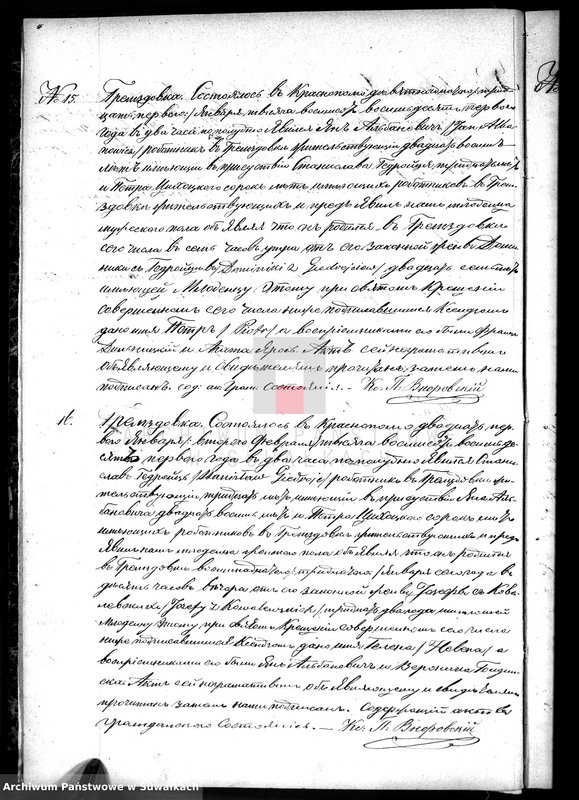 № 15. Гремздовка. Состоялось въ Краснополѣ девятнадцатаго/тридцать
перваго/ Января тысяча восемьсотъ восемьдесятъ перваго
года въ два часа пополудни Явился Янъ Албановичъ /Jan Alba-
nowicz/ работникъ въ Гремздовкѣ жительствующій двадцать восемь
лѣтъ имѣющій въ присутствіи Станислава Гедройця тридцать лѣтъ
и Петра Цихоцкого сорокъ лѣтъ имѣющихъ работниковъ въ Грем-
здовкѣ жительствующихъ и предъявилъ намъ младенца
мужескаго пола объявляя что онъ родился въ Гремздовкѣ
сего числа въ семь часовъ утра отъ его законной жены Доми-
никѣ съ Гедройцевъ /Dominiki z Giedrojciów/ двадцать семь лѣтъ
имѣющей Младенцу этому при святомъ Крещеніи
совершенномъ сего числа нижеподписавшимся Ксендзомъ
дано имя Петръ /Piotr/ а воспріемниками его были Францъ
и Агата Актъ сей неграматнымъ
объявляющему и свидѣтелямъ прочитанъ, затѣмъ нами
подписанъ. сод: ак: Граж: Состоянія. — Кс. П. Вноровскій
16. Гремздовка. Состоялось въ Краснополѣ двадцать пер-
ваго Января/ втораго Февраля/ тысяча восемьсотъ восемьде-
сятъ перваго года въ два часа пополудни явился Стани-
славъ Гедройць /Stanisław Giedrojc/ работникъ въ Гремздовкѣ жи-
тельствующій тридцать лѣтъ имѣющій въ присутствіи Яна Ал-
бановича двадцать восемь лѣтъ и Петра Цихоцкого сорокъ лѣтъ
имѣющихъ работниковъ въ Гремздовкѣ жительствующихъ и предъ-
явилъ намъ младенца женскаго пола объявляя что онъ родился
въ Гремздовкѣ восемнадцатаго/тридцатаго/ Января сего года въ
десять часовъ вечера отъ его законной жены Іозефы съ Кова-
левскихъ /Józefy z Kowalewskich/ тридцать два года имѣющей
Младенцу этому при святомъ Крещеніи совершенномъ сего числа
нижеподписавшимся Ксендзомъ дано имя Гелена /Helena/ а
воспріемниками его были Янъ Албановичъ и Вероника
Актъ сей неграматнымъ объявляющему и свидѣтелямъ
прочитанъ затѣмъ нами подписанъ. Содержащій акты
гражданскаго Состоянія. — Кс. П. Вноровскій
Archiwum Państwowe w Suwałkach